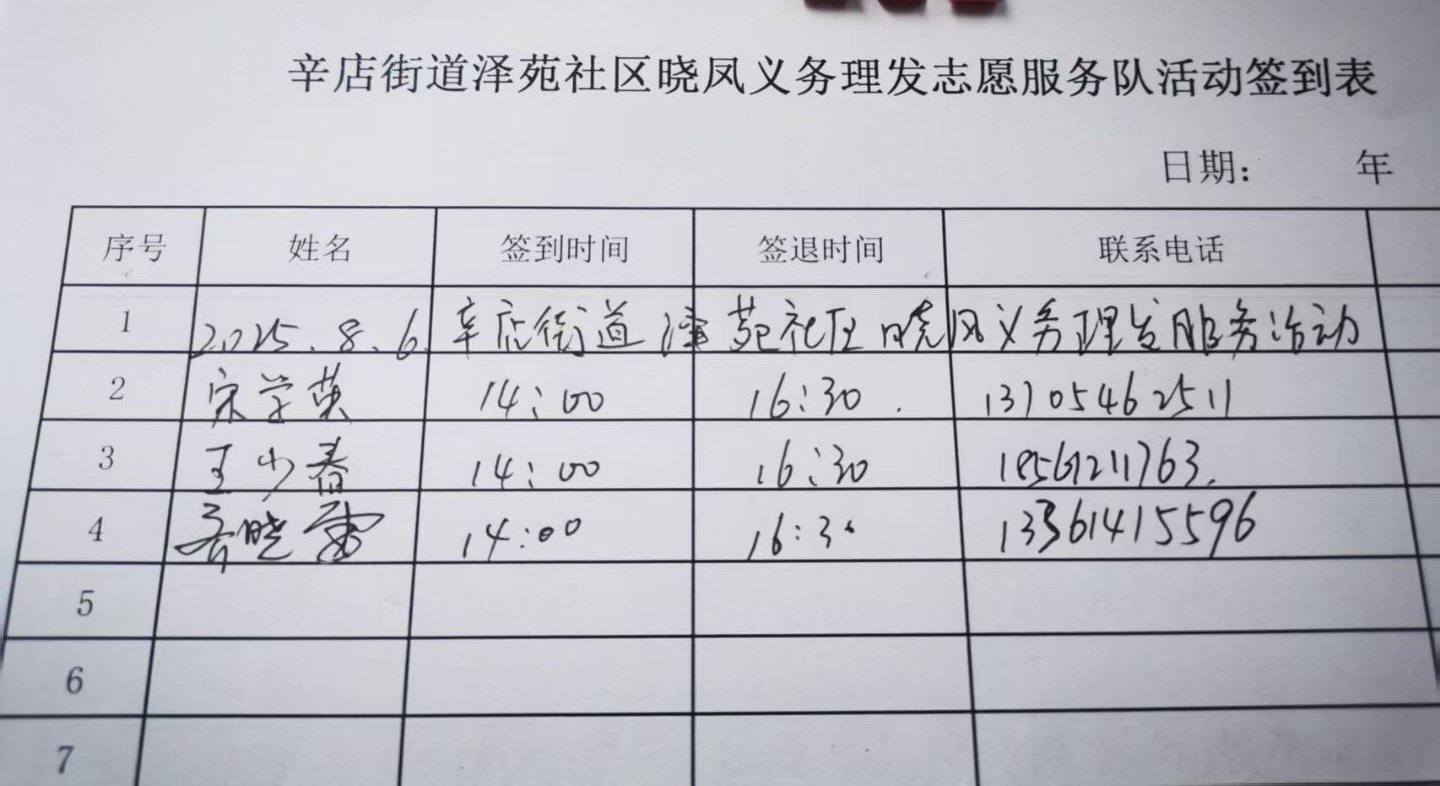 辛店街道泽苑社区晓凤义务理发志愿服务队活动签到表
日期： 年
序号 姓名 签到时间 签退时间 联系电话
1 2025.8.6 辛店街道泽苑社区晓凤义务理发服务活动
2 宋学英 14:00 16:30 13705462511
3 王少春 14:00 16:30 18561211763
4 晓 14:00 16:30 13361415596
5
6
7